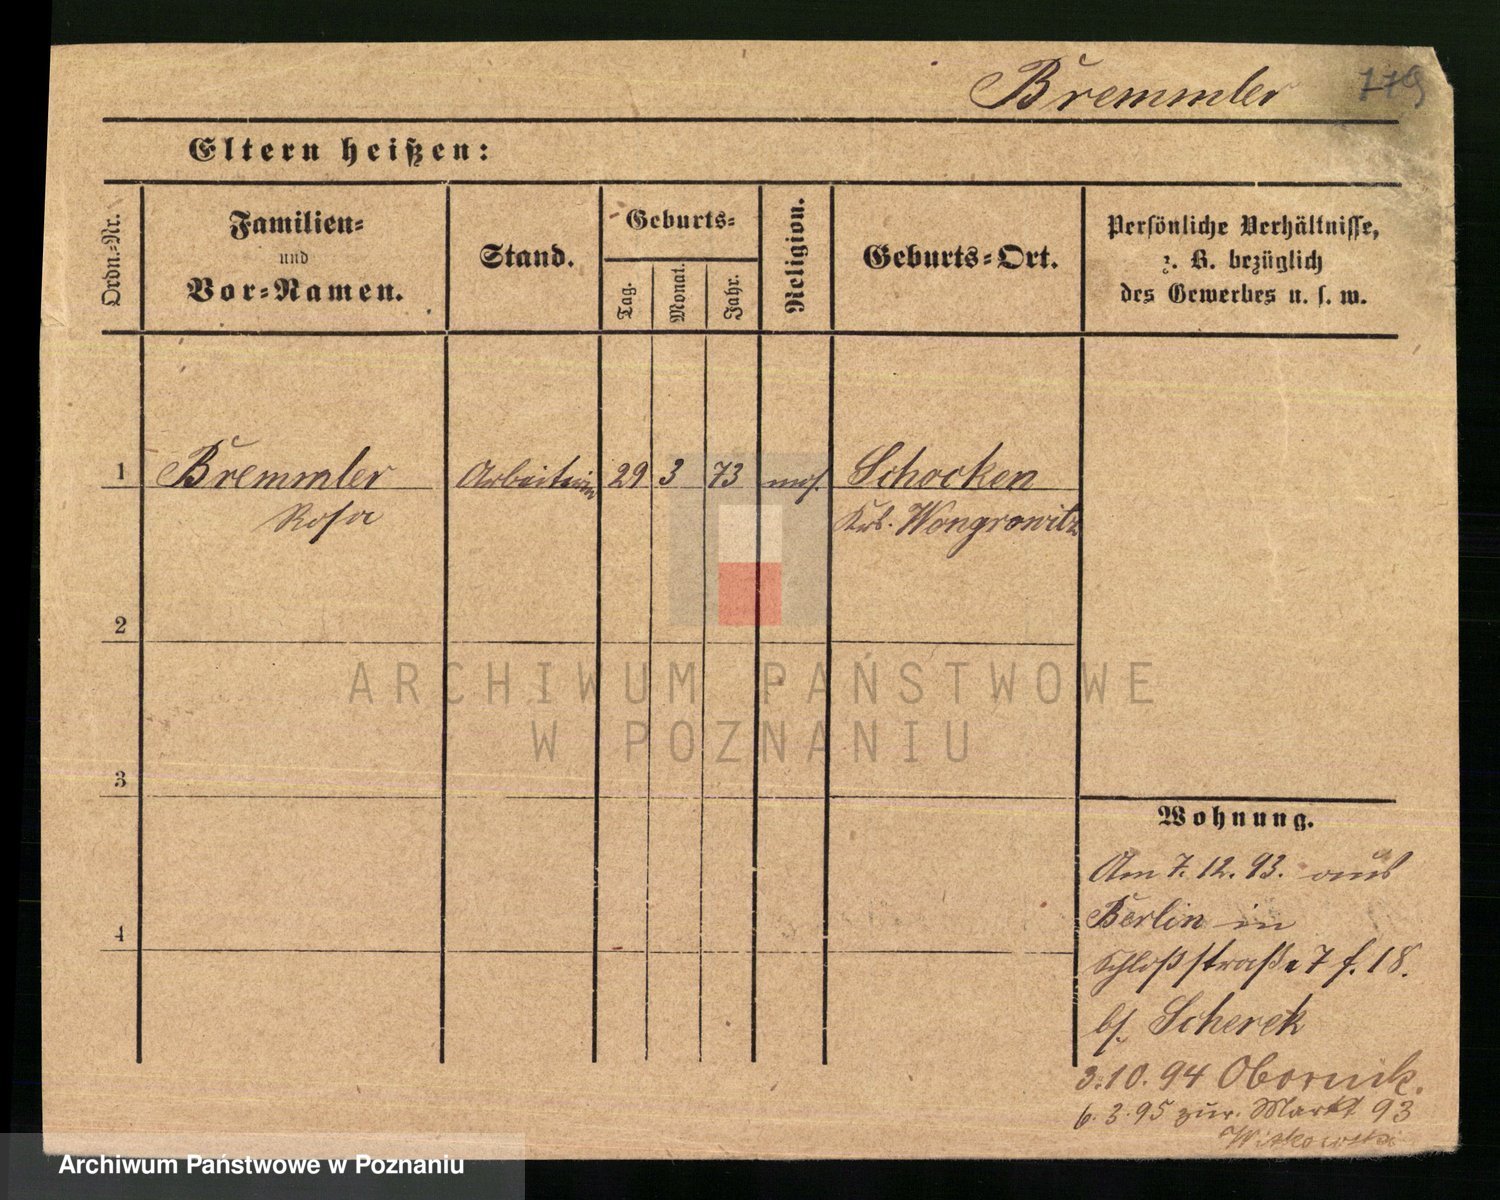 Bremmler 119
Eltern heißen:
Ordn.-Nr.
Familien-
und
Vor-Namen.
Stand.
Geburts-
Tag.
Monat.
Jahr.
Religion.
Geburts-Ort.
Persönliche Verhältnisse,
z. B. bezüglich
des Gewerbes u. s. w.
1 Bremmler Arbeiterin 29 3 73 mos. Schocken
Rosa Krs. Wongrowitz
2
3
4
Wohnung.
Am 7. 12. 93. aus
Berlin in
Schloßstraße 7 f. 18.
bf. Scherek
3.10.94 Obornik.
6.3.95 zur. Markt 93
Witkowski
ARCHIWUM PAŃSTWOWE
W POZNANIU
Archiwum Państwowe w Poznaniu